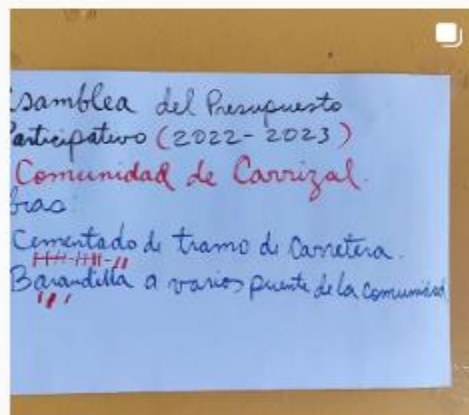 samblea del Presupuesto
articipativo (2022-2023)
Comunidad de Carrizal.
bras
Cementado de tramo de Carretera.
Barandilla a varios puente de la comunidad